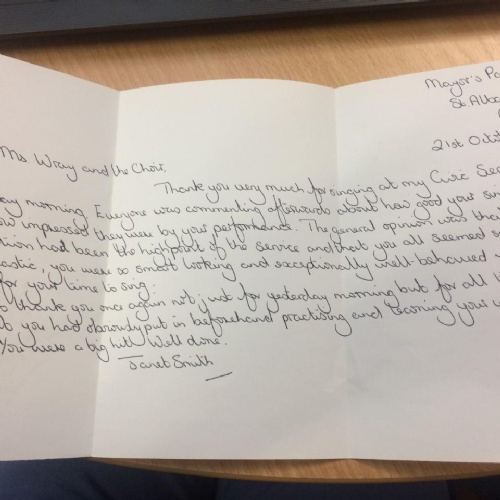 Mayor's Pa
St. Alba
21st Octo
Ms Wray and the Choir,
Thank you very much for singing at my Civic Se
ay morning. Everyone was commenting afterwards about how good your sin
ow impressed they were by your performance. The general opinion was tha
tion had been the highpoint of the service and that you all seemed s
astic, you were so smart looking and exceptionally well-behaved w
for your time to sing.
o thank you once again not just for yesterday morning but for all
k you had obviously put in beforehand practising and learning your
You were a big hit! Well done.
Janet Smith